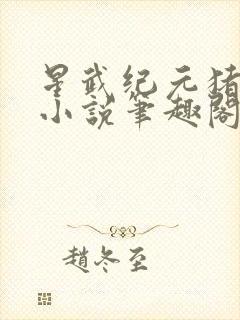 星武纪元猪
小说笔趣阁
趙冬至